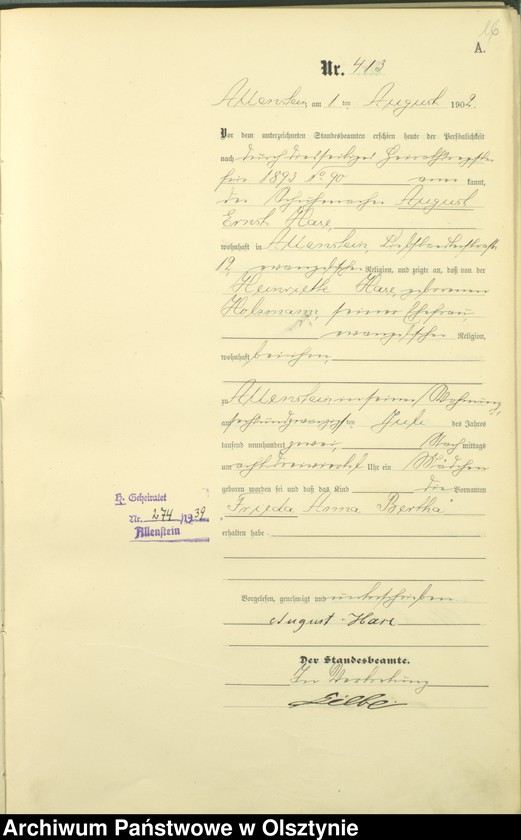 16
A.
Nr. 413
Allenstein am 1 ten August 1902.
Vor dem unterzeichneten Standesbeamten erschien heute der Persönlichkeit
nach durch diesseitiges
für 1893 No 90 aner kannt,
der Schuhmacher August
Ernst Hare,
wohnhaft in Allenstein,
19, evangelischer Religion, und zeigte an, daß von der
Henriette Hare, geborenen
Holzmann, seiner Ehefrau,
evangelischer Religion,
wohnhaft bei ihm,
zu Allenstein in seiner Wohnung,
am sechsundzwanzigsten Juli des Jahres
tausend neunhundert zwei, Nach mittags
um acht dreiviertel Uhr ein Mädchen
geboren worden sei und daß das Kind die Vornamen
Frieda Anna Bertha
erhalten habe.
H. Geheiratet
Nr. 274/1939
Allenstein
Vorgelesen, genehmigt und unterschrieben
August Hare
Der Standesbeamte.
In Vertretung
Archiwum Państwowe w Olsztynie